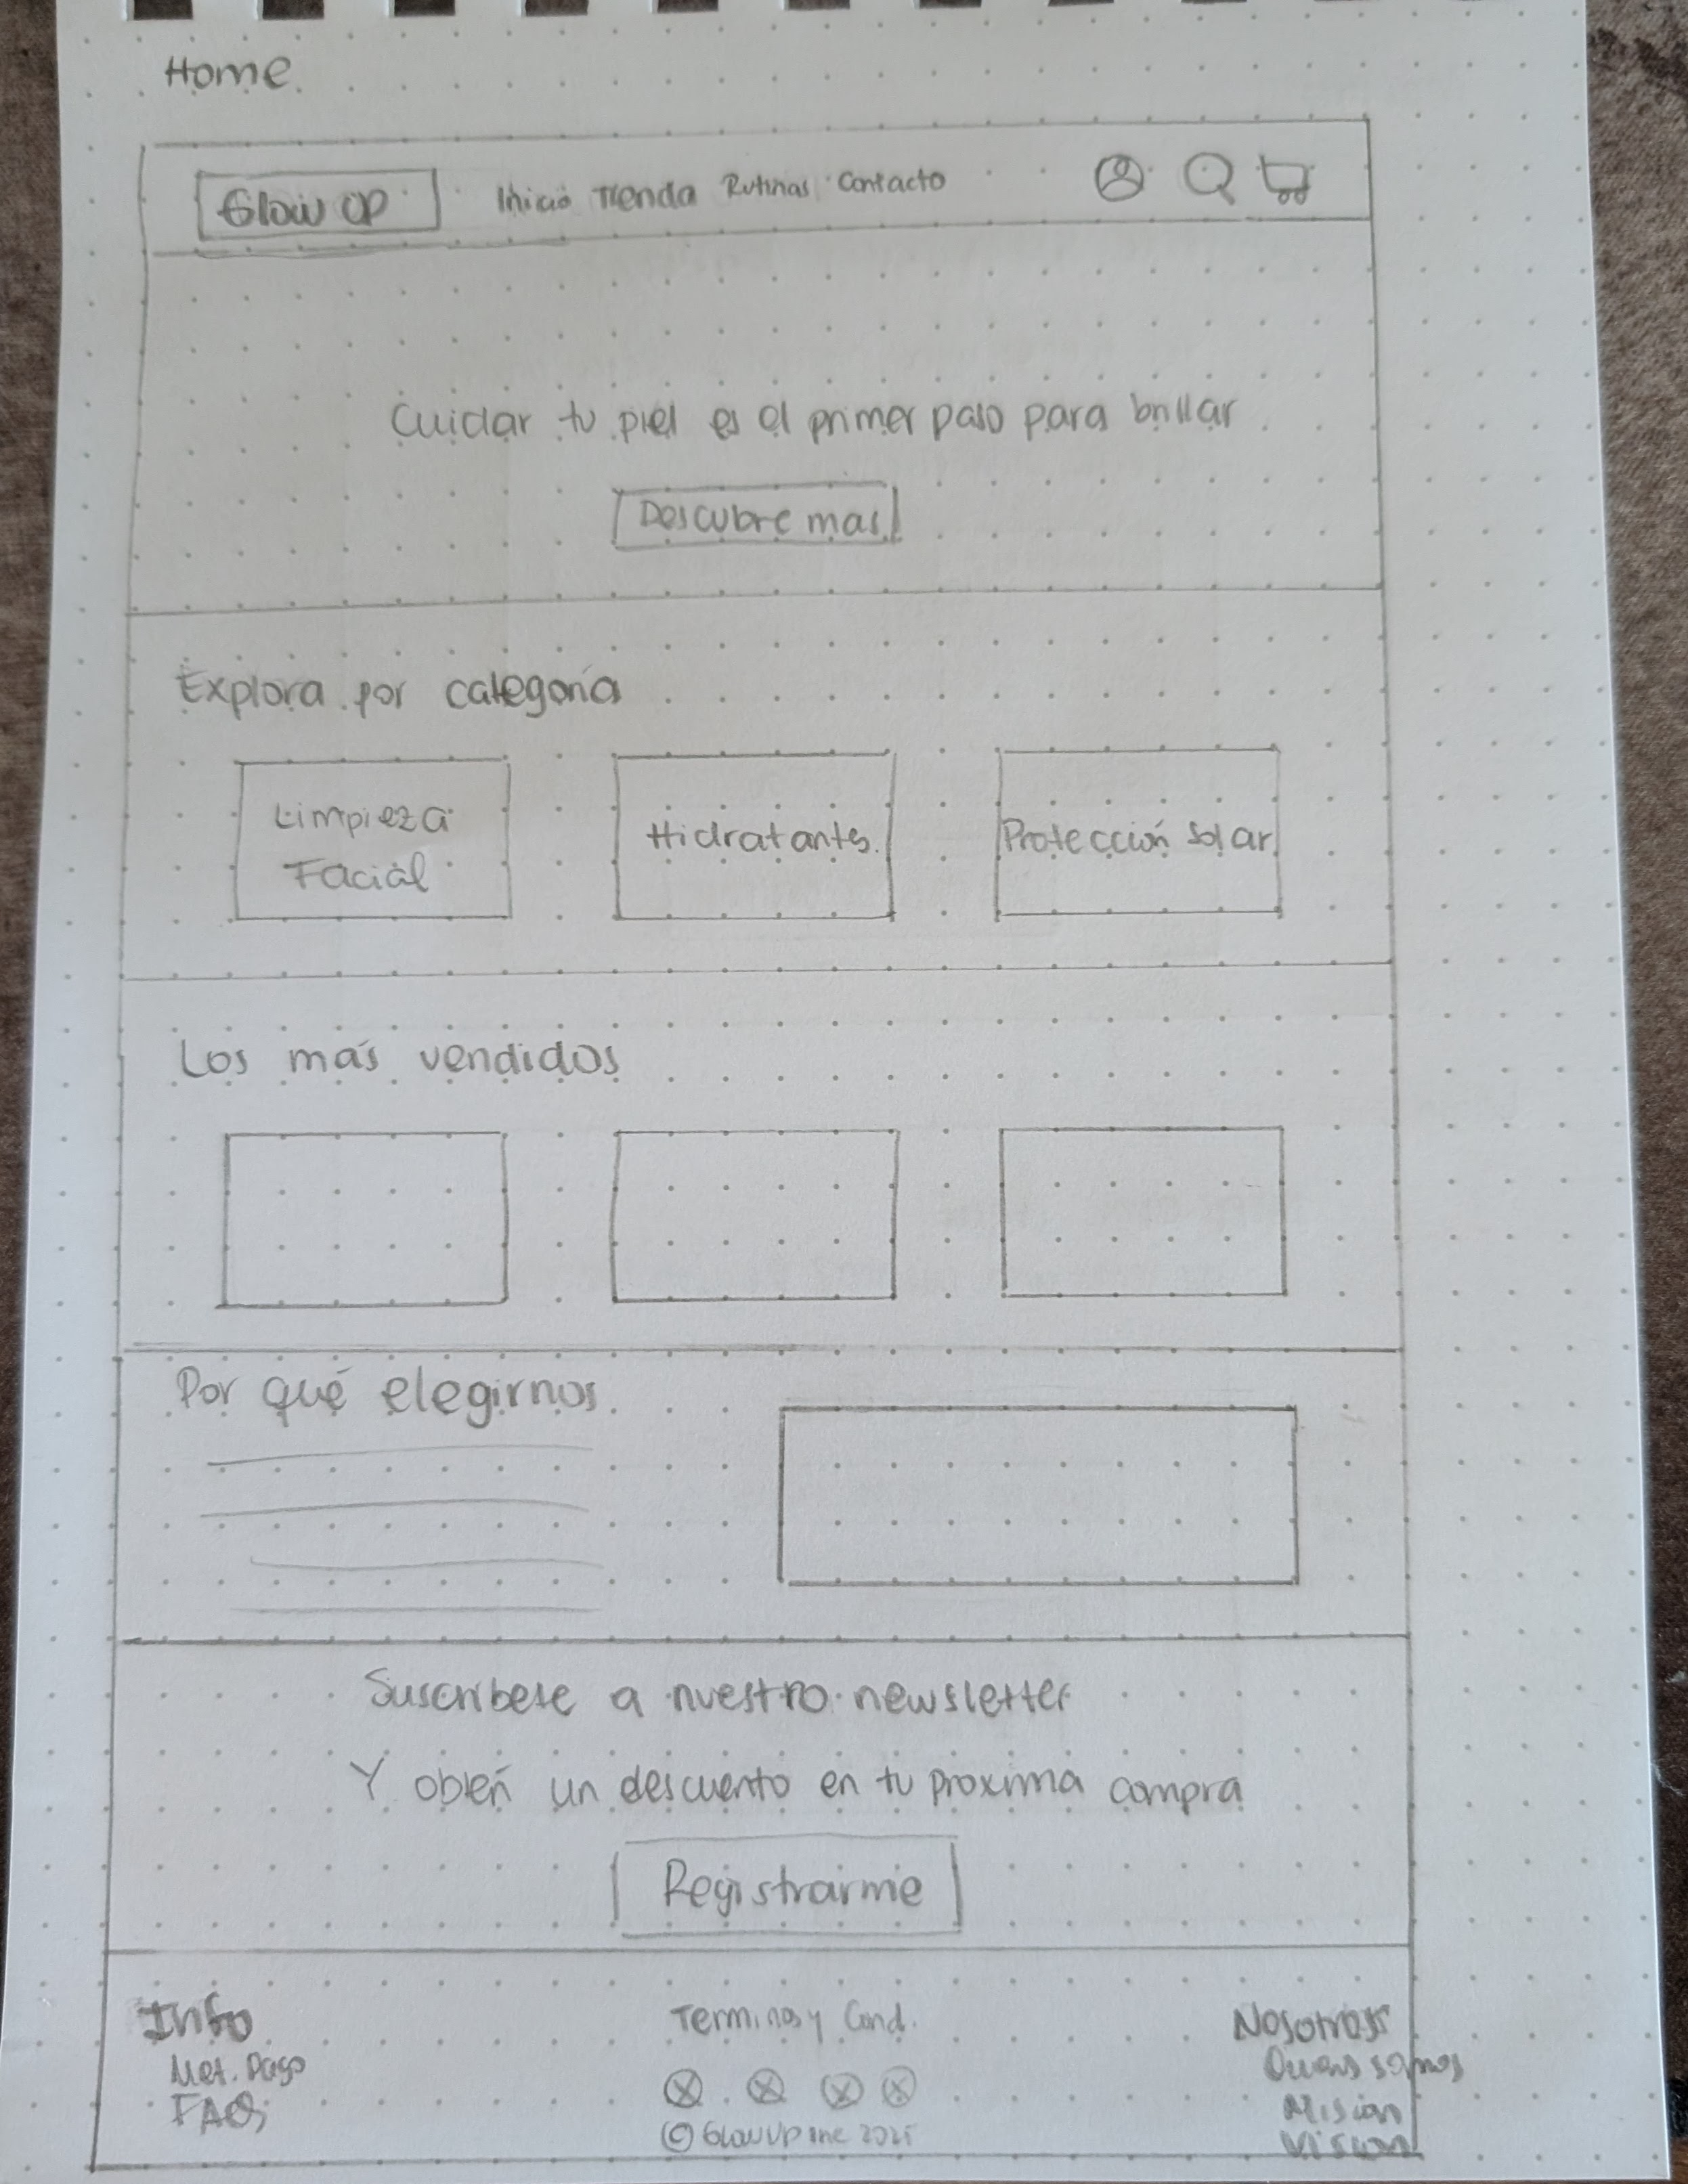 Home
Glow UP Inicio Tienda Rutinas Contacto
Cuidar tu piel es el primer paso para brillar
Descubre mas
Explora por categoría
Limpieza
Facial
Hidratantes
Protección solar
Los más vendidos
Por qué elegirnos
Suscribete a nuestro newsletter
Y obtén un descuento en tu proxima compra
Registrarme
Info
Met. Pago
FAQs
Terminos y Cond.
© GlowUp inc 2025
Nosotros
Quienes somos
Mision
Vision